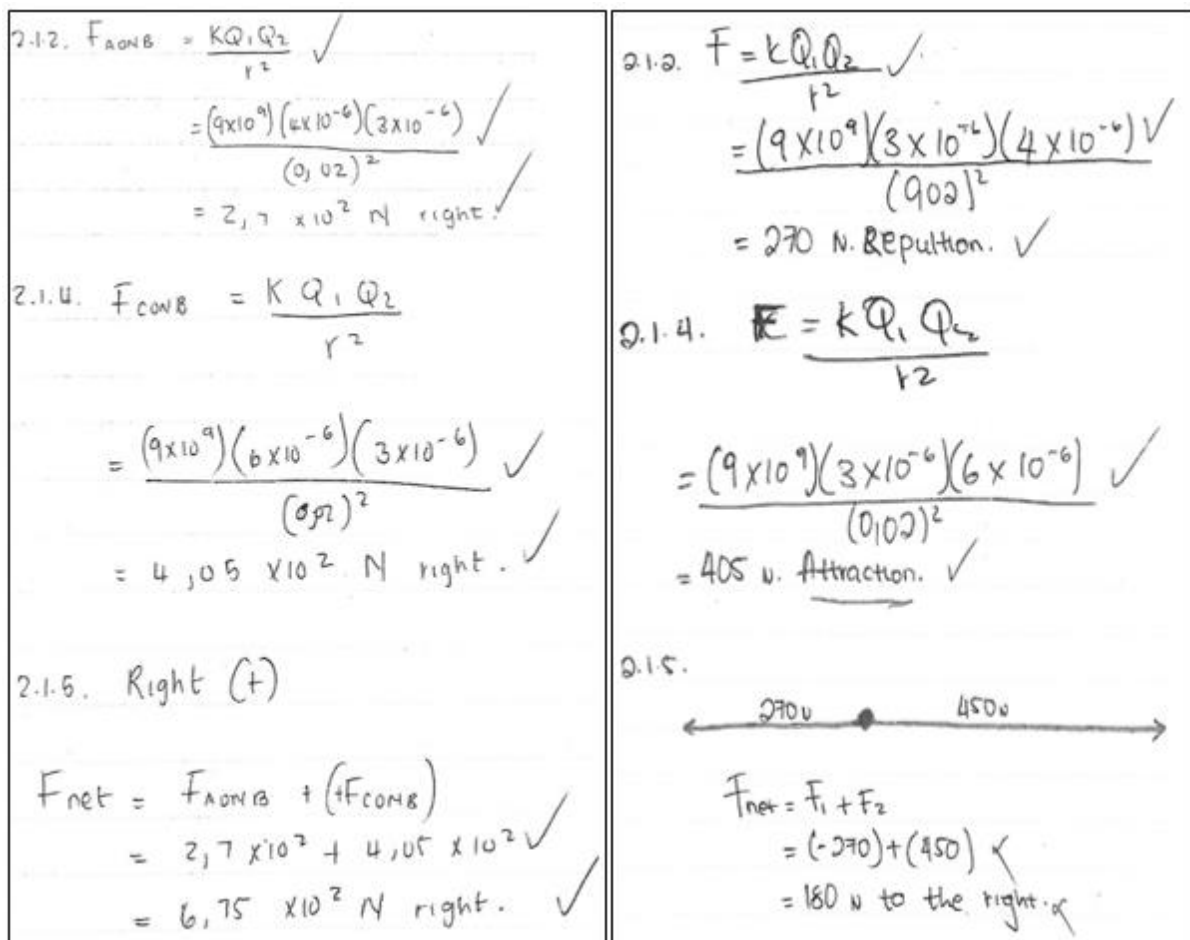 2.1.2. F_AONB = KQ₁Q₂ / r²
= (9x10⁹)(4x10⁻⁶)(3x10⁻⁶) / (0,02)²
= 2,7 x10² N right.
2.1.4. F_CONB = K Q₁ Q₂ / r²
= (9x10⁹)(6x10⁻⁶)(3x10⁻⁶) / (0,02)²
= 4,05 x10² N right.
2.1.5. Right (+)
Fnet = F_AONB + (+F_CONB)
= 2,7 x10² + 4,05 x10²
= 6,75 x10² N right.
2.1.2. F = kQ₁Q₂ / r²
= (9x10⁹)(3x10⁻⁶)(4x10⁻⁶) / (0,02)²
= 270 N. Repultion.
2.1.4. F = kQ₁ Q₂ / r2
= (9x10⁹)(3x10⁻⁶)(6x10⁻⁶) / (0,02)²
= 405 N. Attraction.
2.1.5.
270N 450N
Fnet = F₁ + F₂
= (-270)+(450)
= 180 N to the right.